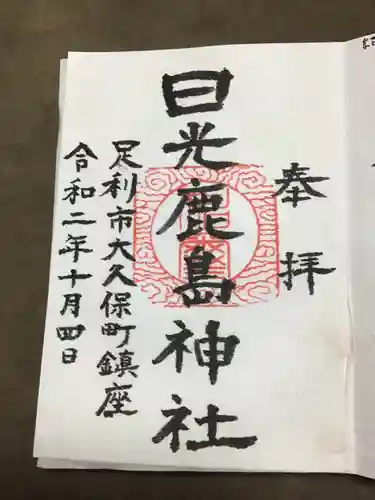 奉拝
日光鹿島神社
足利市大久保町鎮座
令和二年十月四日